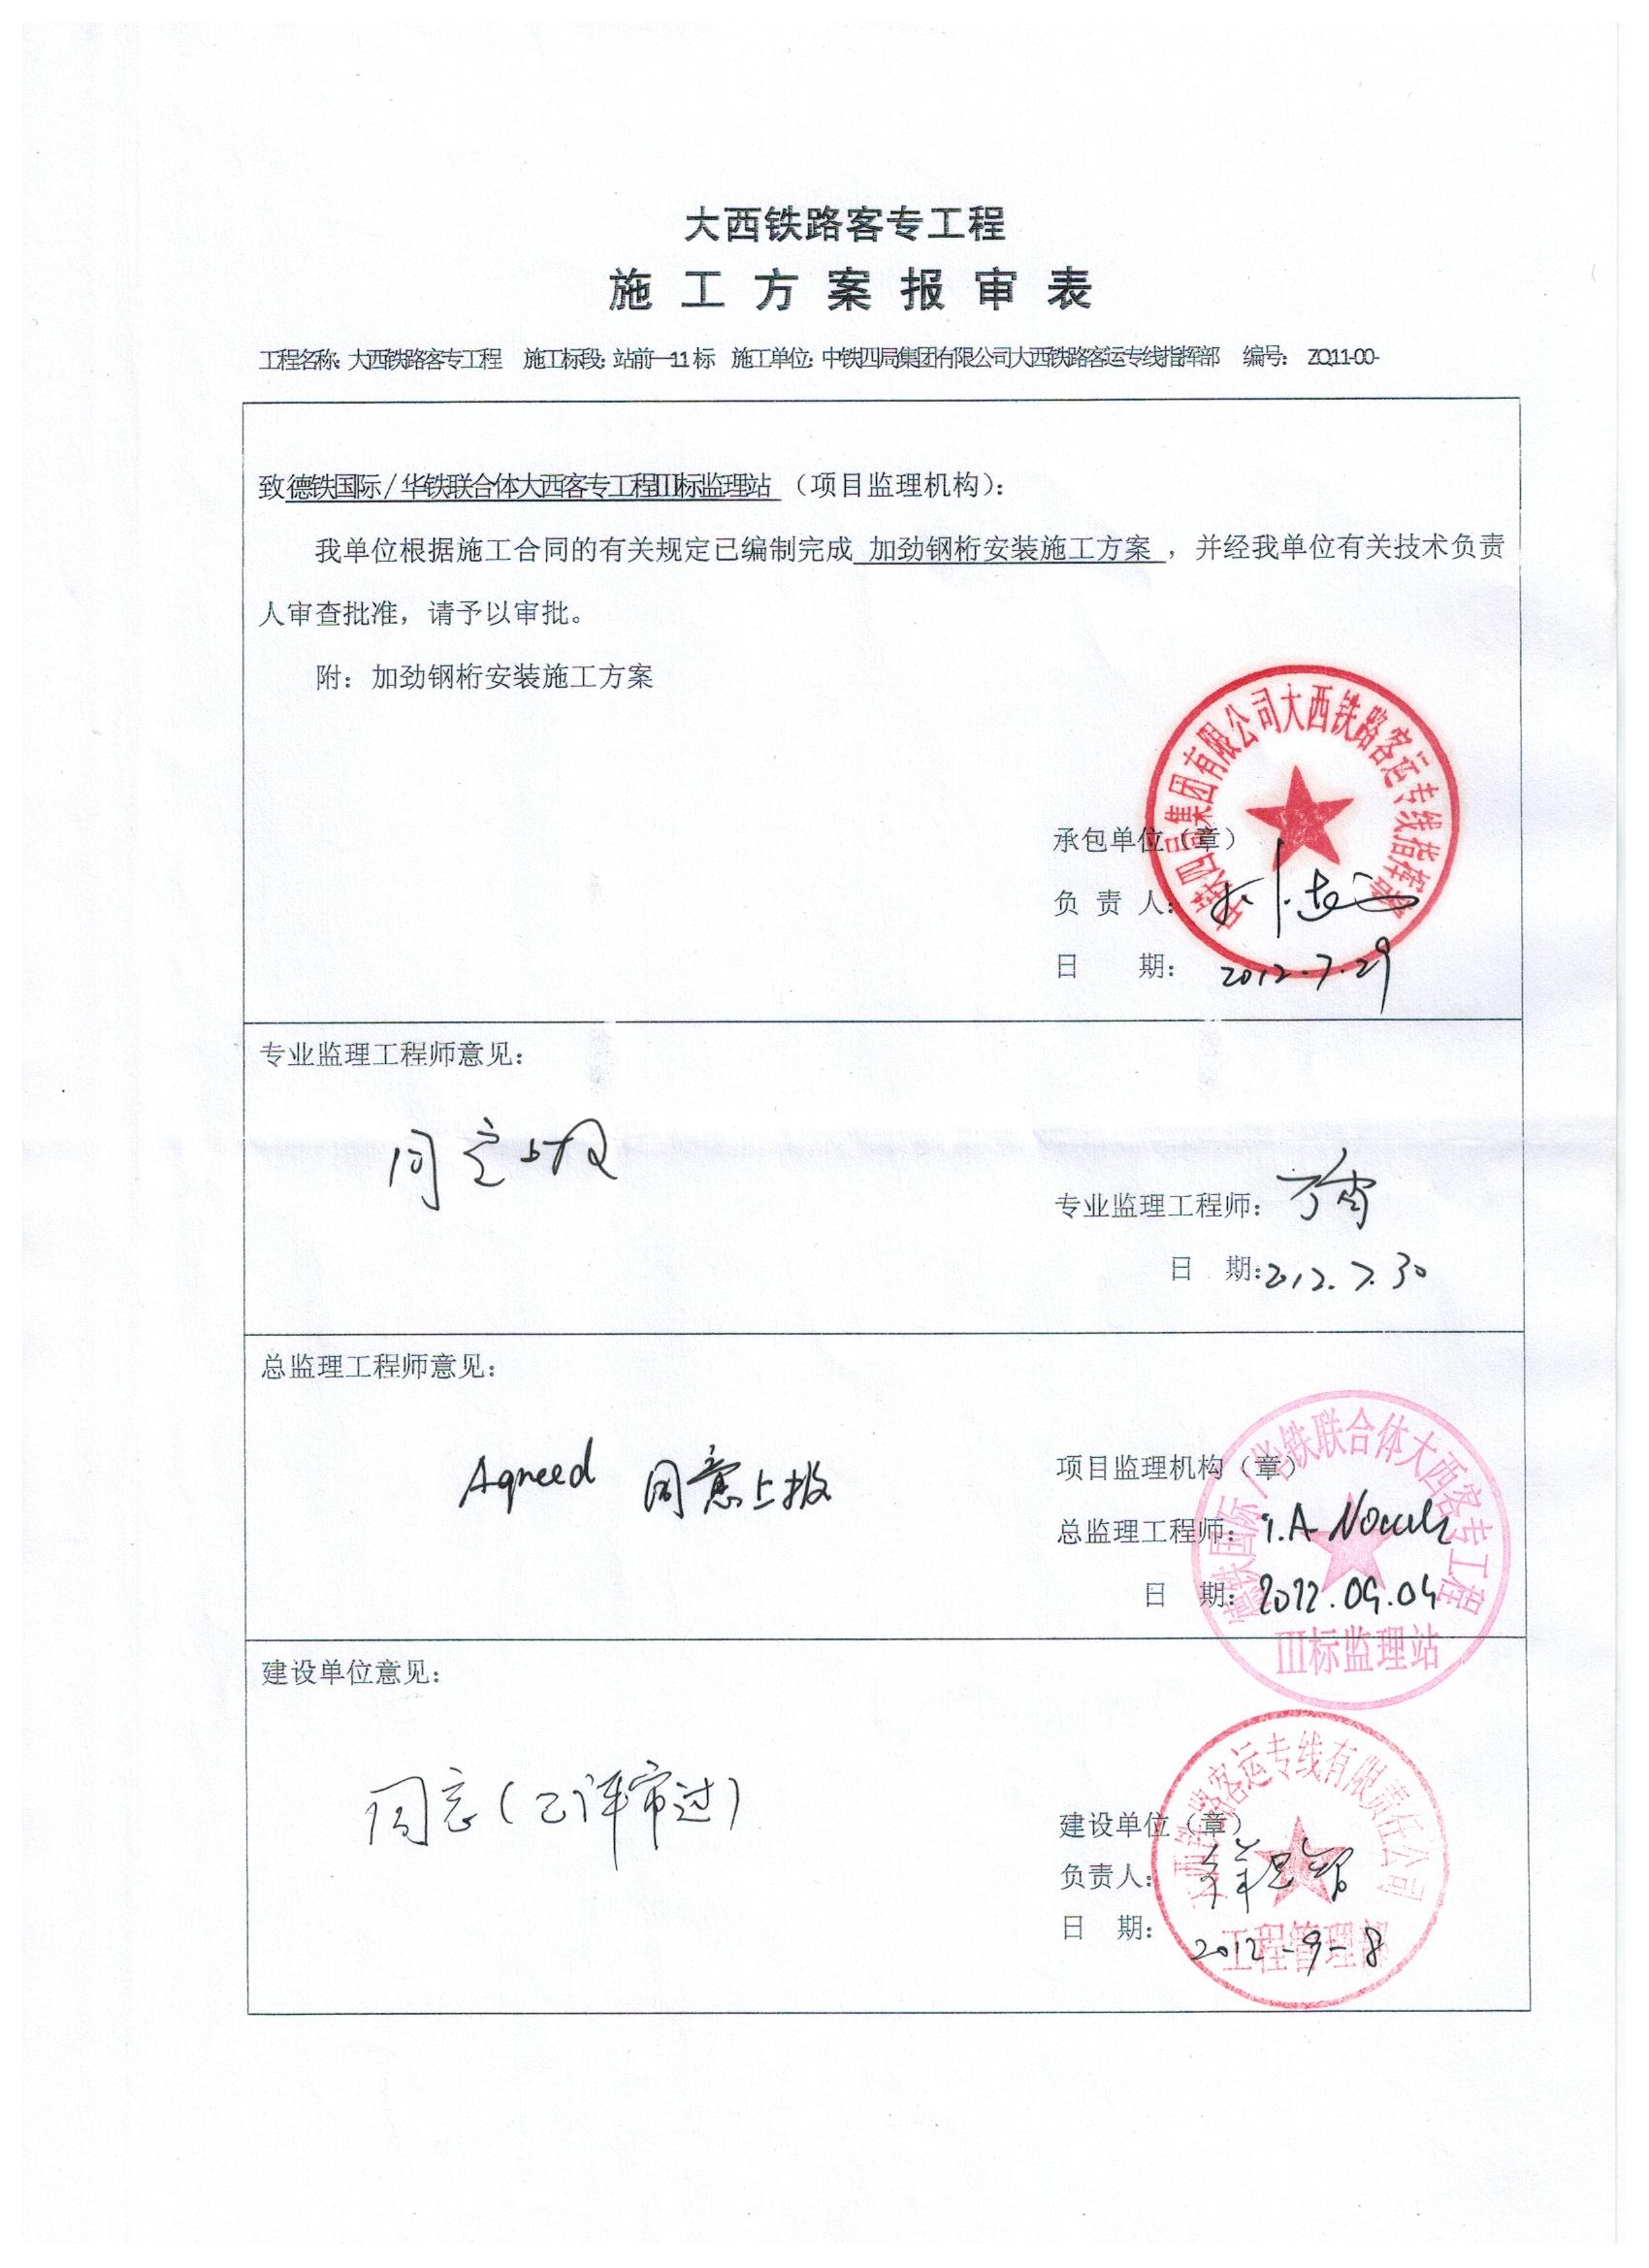 大西铁路客专工程
施工方案报审表
工程名称：大西铁路客专工程 施工标段：站前—11标 施工单位：中铁四局集团有限公司大西铁路客运专线指挥部 编号： ZQ11-00-
致德铁国际/华铁联合体大西客专工程III标监理站（项目监理机构）：
我单位根据施工合同的有关规定已编制完成 加劲钢桁安装施工方案 ，并经我单位有关技术负责
人审查批准，请予以审批。
附：加劲钢桁安装施工方案
中铁四局集团有限公司大西铁路客运专线指挥部
承包单位（章）
负责人：
日 期： 2012.7.29
专业监理工程师意见：
同意上报
专业监理工程师：
日 期：2012.7.30
总监理工程师意见：
Agreed 同意上报
德铁国际/华铁联合体大西客专工程
III标监理站
项目监理机构（章）
总监理工程师：
日 期：2012.09.04
建设单位意见：
同意（已评审过）
大西铁路客运专线有限责任公司
工程管理部
建设单位（章）
负责人：
日 期： 2012-9-8